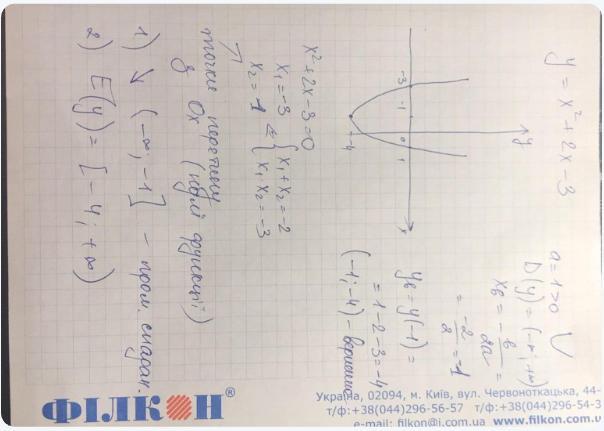 y = x² + 2x - 3
a = 1 > 0 ∪
D(y) = (-∞; +∞)
xв = -в/2a =
= -2/2 = -1
yв = y(-1) =
= 1 - 2 - 3 = -4
(-1; -4) - вершина
y
-3
-1
0
1
x
-4
x² + 2x - 3 = 0
x₁ = -3 ⇐ { x₁ + x₂ = -2
x₂ = 1 { x₁ · x₂ = -3
точки перетину
з Ox (нулі функції)
1) ↘ (-∞; -1] - пром. спадан.
2) E(y) = [-4; +∞)
ФІЛКОН®
Україна, 02094, м. Київ, вул. Червоноткацька, 44-
т/ф:+38(044)296-56-57 т/ф:+38(044)296-54-3
e-mail: filkon@i.com.ua www.filkon.com.u